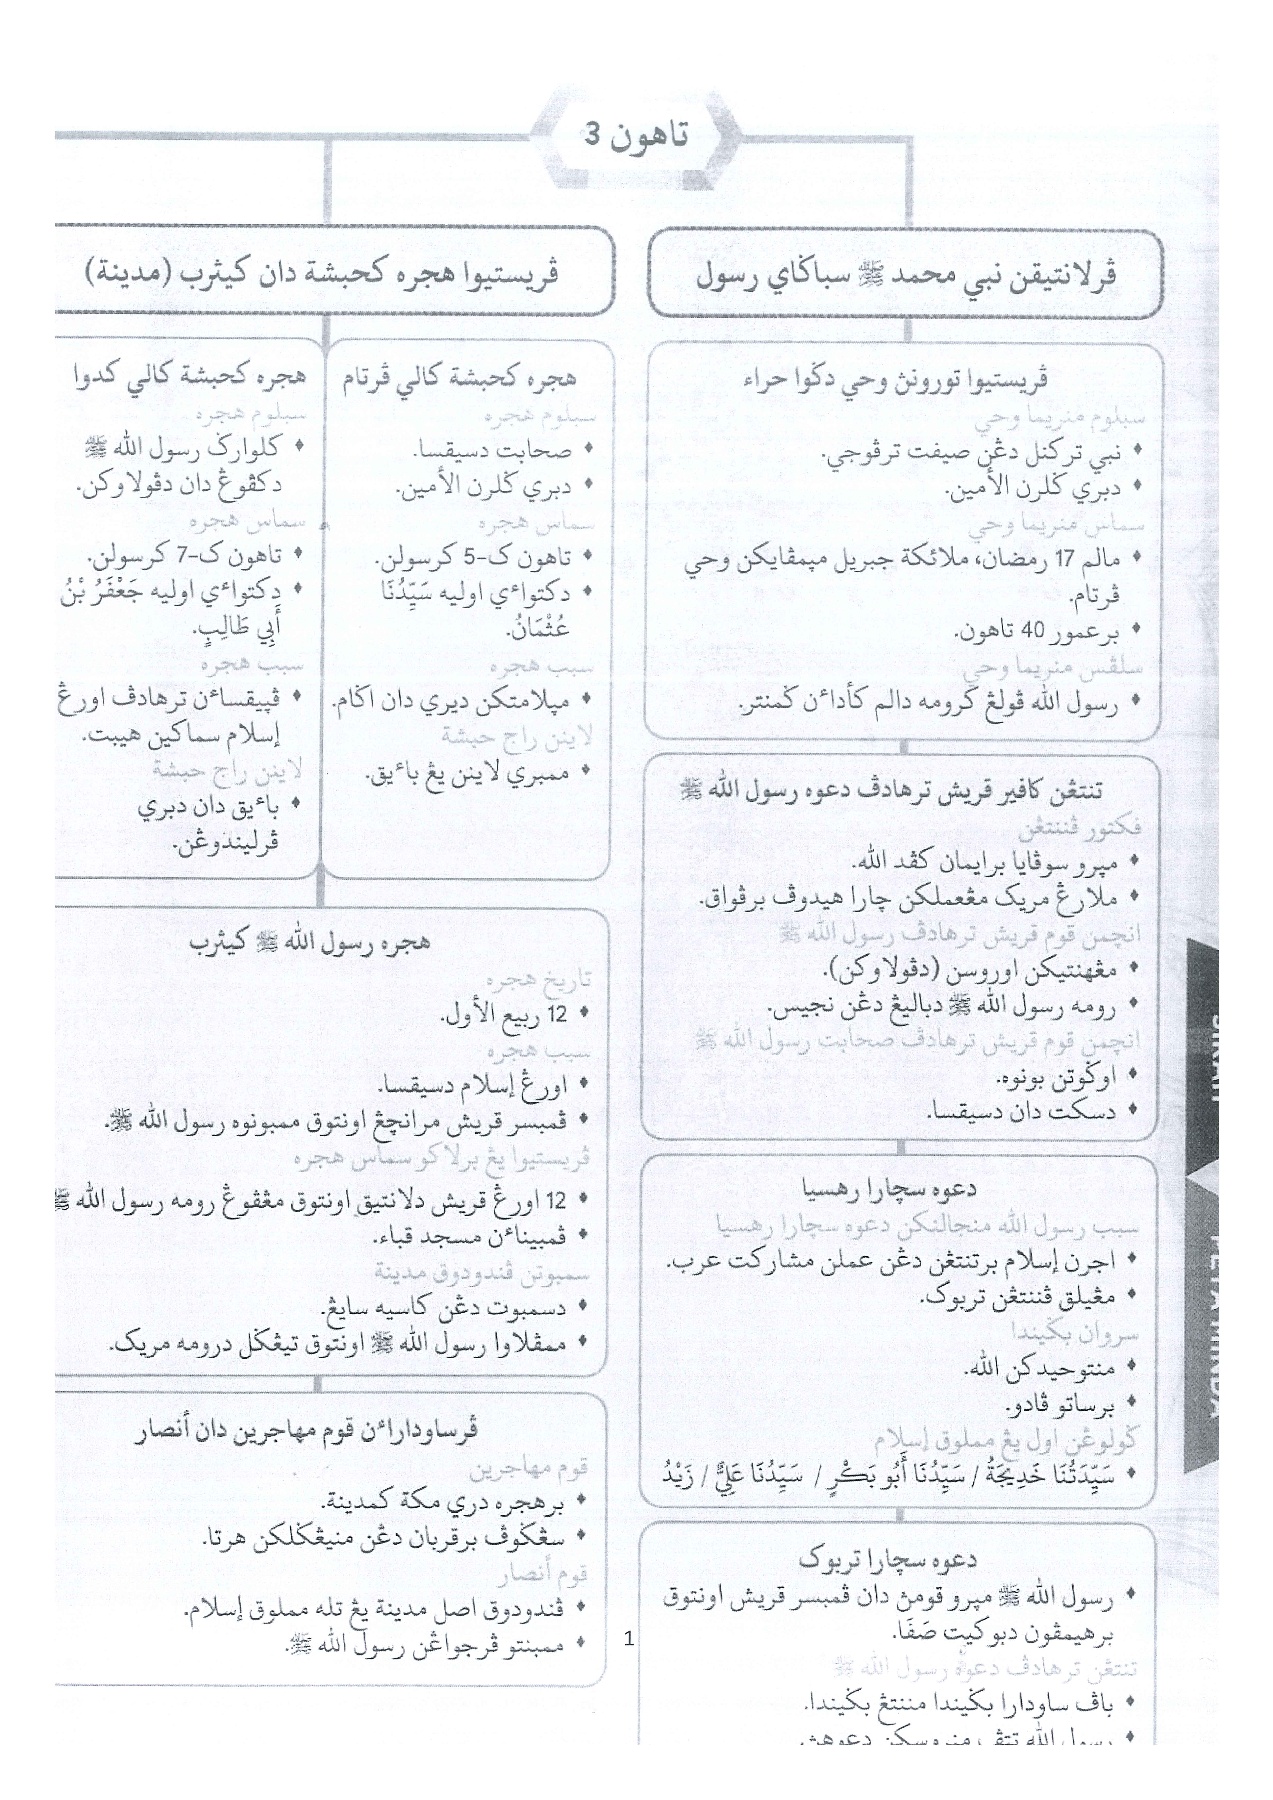 تاهون 3
ڤرلانتيقن نبي محمد ﷺ سباݢاي رسول
ڤريستيوا تورونڽ وحي دݢوا حراء
سبلوم منريما وحي
♦ نبي ترکنل دڠن صيفت ترڤوجي.
♦ دبري ݢلرن الأمين.
سماس منريما وحي
♦ مالم 17 رمضان، ملائكة جبريل مڽمڤايکن وحي
ڤرتام.
♦ برعمور 40 تاهون.
سلڤس منريما وحي
♦ رسول الله ڤولڠ کرومه دالم کأداءن ݢمنتر.
تنتڠن کافير قريش ترهادڤ دعوه رسول الله ﷺ
فکتور ڤننتڠن
♦ مڽرو سوڤايا برايمان کڤد الله.
♦ ملارڠ مريک مڠعملکن چارا هيدوڤ برڤواق.
انچمن قوم قريش ترهادڤ رسول الله ﷺ
♦ مڠهنتيکن اوروسن (دڤولاوکن).
♦ رومه رسول الله ﷺ دباليڠ دڠن نجيس.
انچمن قوم قريش ترهادڤ صحابت رسول الله ﷺ
♦ اوݢوتن بونوه.
♦ دسکت دان دسيقسا.
دعوه سچارا رهسيا
سبب رسول الله منجالنکن دعوه سچارا رهسيا
♦ اجرن إسلام برتنتڠن دڠن عملن مشارکت عرب.
♦ مڠيلق ڤننتڠن تربوک.
سروان بݢيندا
♦ منتوحيدکن الله.
♦ برساتو ڤادو.
ݢولوڠن اول يڠ مملوق إسلام
♦ سَيِّدَتُنَا خَدِيْجَةُ / سَيِّدُنَا أَبُو بَكْرٍ / سَيِّدُنَا عَلِيٌّ / زَيْدُ
دعوه سچارا تربوک
♦ رسول الله ﷺ مڽرو قومڽ دان ڤمبسر قريش اونتوق
برهيمڤون دبوکيت صَفَا.
تنتڠن ترهادڤ دعوة رسول الله ﷺ
♦ باڤ ساودارا بݢيندا مننتڠ بݢيندا.
♦ رسول الله تتڤ منروسکن دعوهڽ.
ڤريستيوا هجره کحبشة دان کيثرب (مدينة)
هجره کحبشة کالي ڤرتام
سبلوم هجره
♦ صحابت دسيقسا.
♦ دبري ݢلرن الأمين.
سماس هجره
♦ تاهون ک-5 کرسولن.
♦ دکتواءي اوليه سَيِّدُنَا
عُثْمَانُ.
سبب هجره
♦ مڽلامتکن ديري دان اݢام.
لاينن راج حبشة
♦ ممبري لاينن يڠ باءيق.
هجره کحبشة کالي کدوا
سبلوم هجره
♦ کلوارݢ رسول الله ﷺ
دکڤوڠ دان دڤولاوکن.
سماس هجره
♦ تاهون ک-7 کرسولن.
♦ دکتواءي اوليه جَعْفَرُ بْنُ
أَبِي طَالِبٍ.
سبب هجره
♦ ڤڽيقساءن ترهادڤ اورڠ
إسلام سماکين هيبت.
لاينن راج حبشة
♦ باءيق دان دبري
ڤرليندوڠن.
هجره رسول الله ﷺ کيثرب
تاريخ هجره
♦ 12 ربيع الأول.
سبب هجره
♦ اورڠ إسلام دسيقسا.
♦ ڤمبسر قريش مرانچڠ اونتوق ممبونوه رسول الله ﷺ.
ڤريستيوا يڠ برلاکو سماس هجره
♦ 12 اورڠ قريش دلانتيق اونتوق مڠڤوڠ رومه رسول الله ﷺ
♦ ڤمبيناءن مسجد قباء.
سمبوتن ڤندودوق مدينة
♦ دسمبوت دڠن کاسيه سايڠ.
♦ ممڤلاوا رسول الله ﷺ اونتوق تيڠݢل درومه مريک.
ڤرساوداراءن قوم مهاجرين دان أنصار
قوم مهاجرين
♦ برهجره دري مکة کمدينة.
♦ سڠݢوڤ برقربان دڠن منيڠݢلکن هرتا.
قوم أنصار
♦ ڤندودوق اصل مدينة يڠ تله مملوق إسلام.
♦ ممبنتو ڤرجواڠن رسول الله ﷺ.
1
SIRAH
PETA MINDA